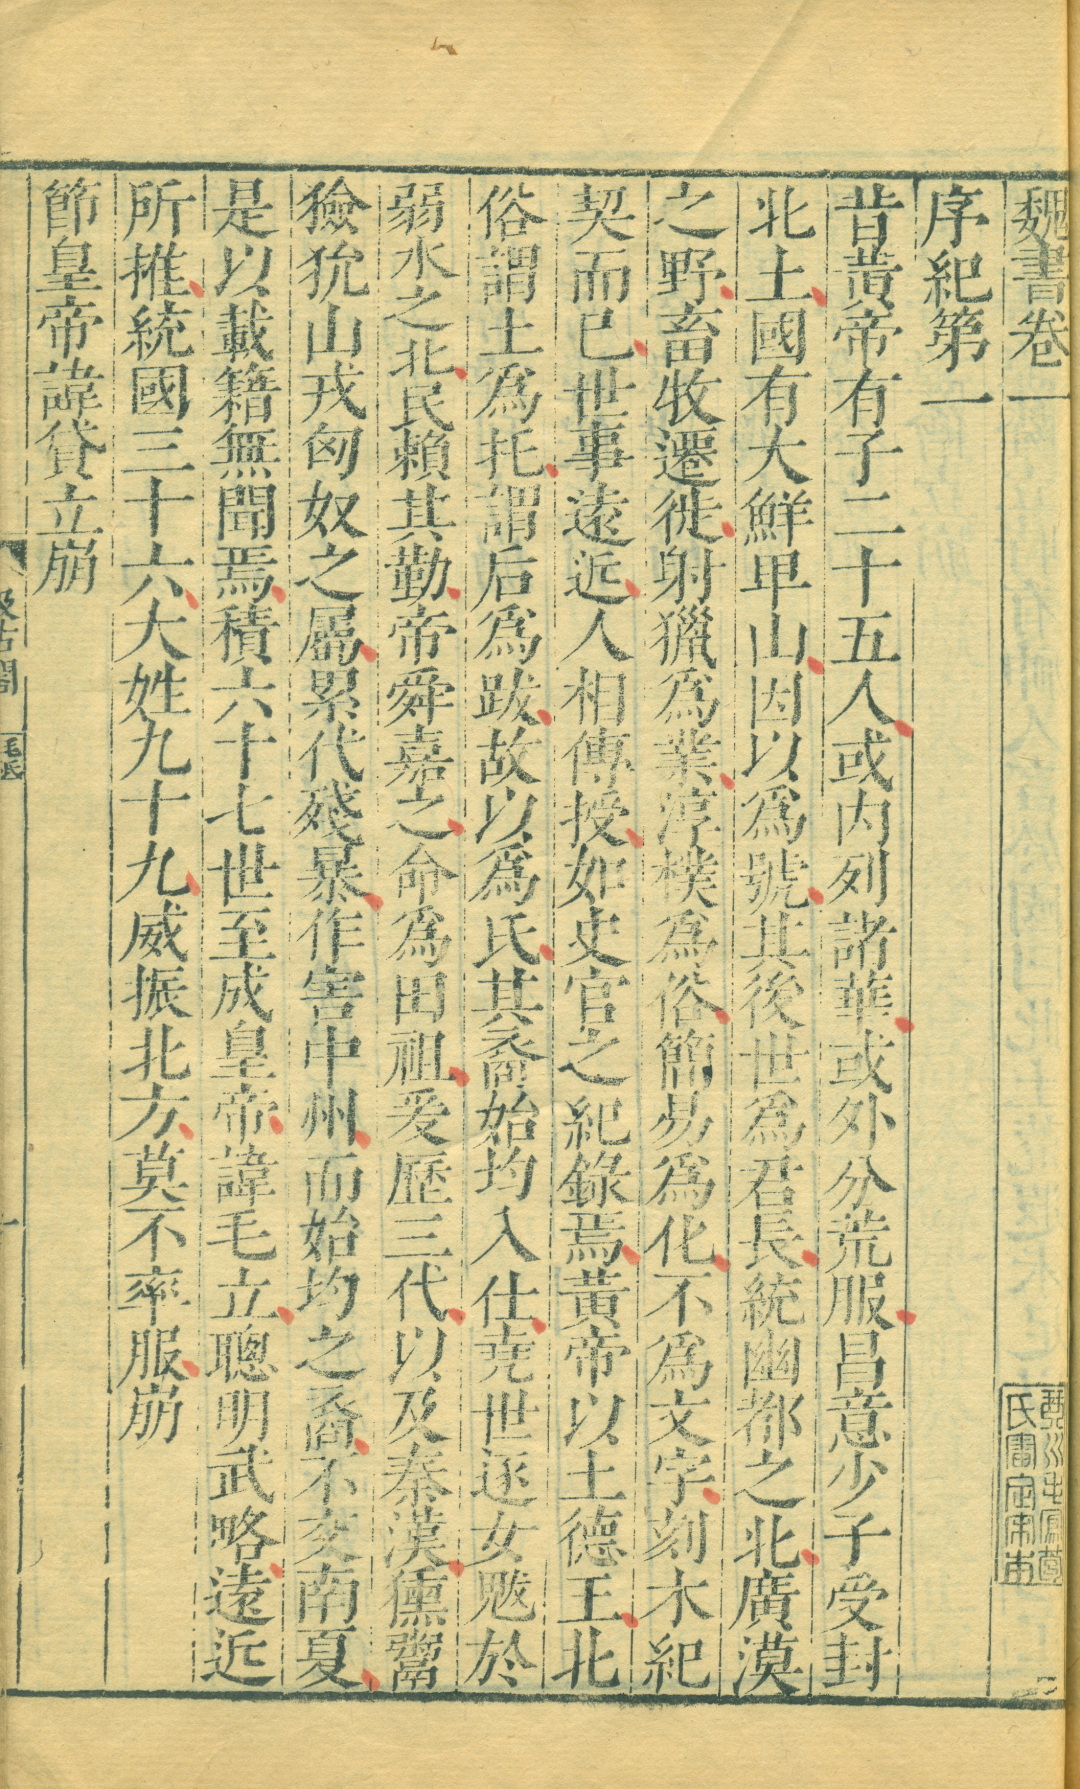 魏書卷一
序紀第一
昔黃帝有子二十五人或内列諸華或外分荒服昌意少子受封
北土國有大鮮卑山因以爲號其後世爲君長統幽都之北廣漠
之野畜牧遷徙射獵爲業淳樸爲俗簡易爲化不爲文字刻木紀
契而已世事遠近人相傳授如史官之紀錄焉黃帝以土德王北
俗謂土爲托謂后爲跋故以爲氏其裔始均入仕堯世逐女魃於
弱水之北民賴其勤帝舜嘉之命爲田祖爰歷三代以及秦漢獯鬻
獫狁山戎匈奴之屬累代殘暴作害中州而始均之裔不交南夏
是以載籍無聞焉積六十七世至成皇帝諱毛立聰明武略遠近
所推統國三十六大姓九十九威振北方莫不率服崩
節皇帝諱貸立崩
汲古閣
毛氏